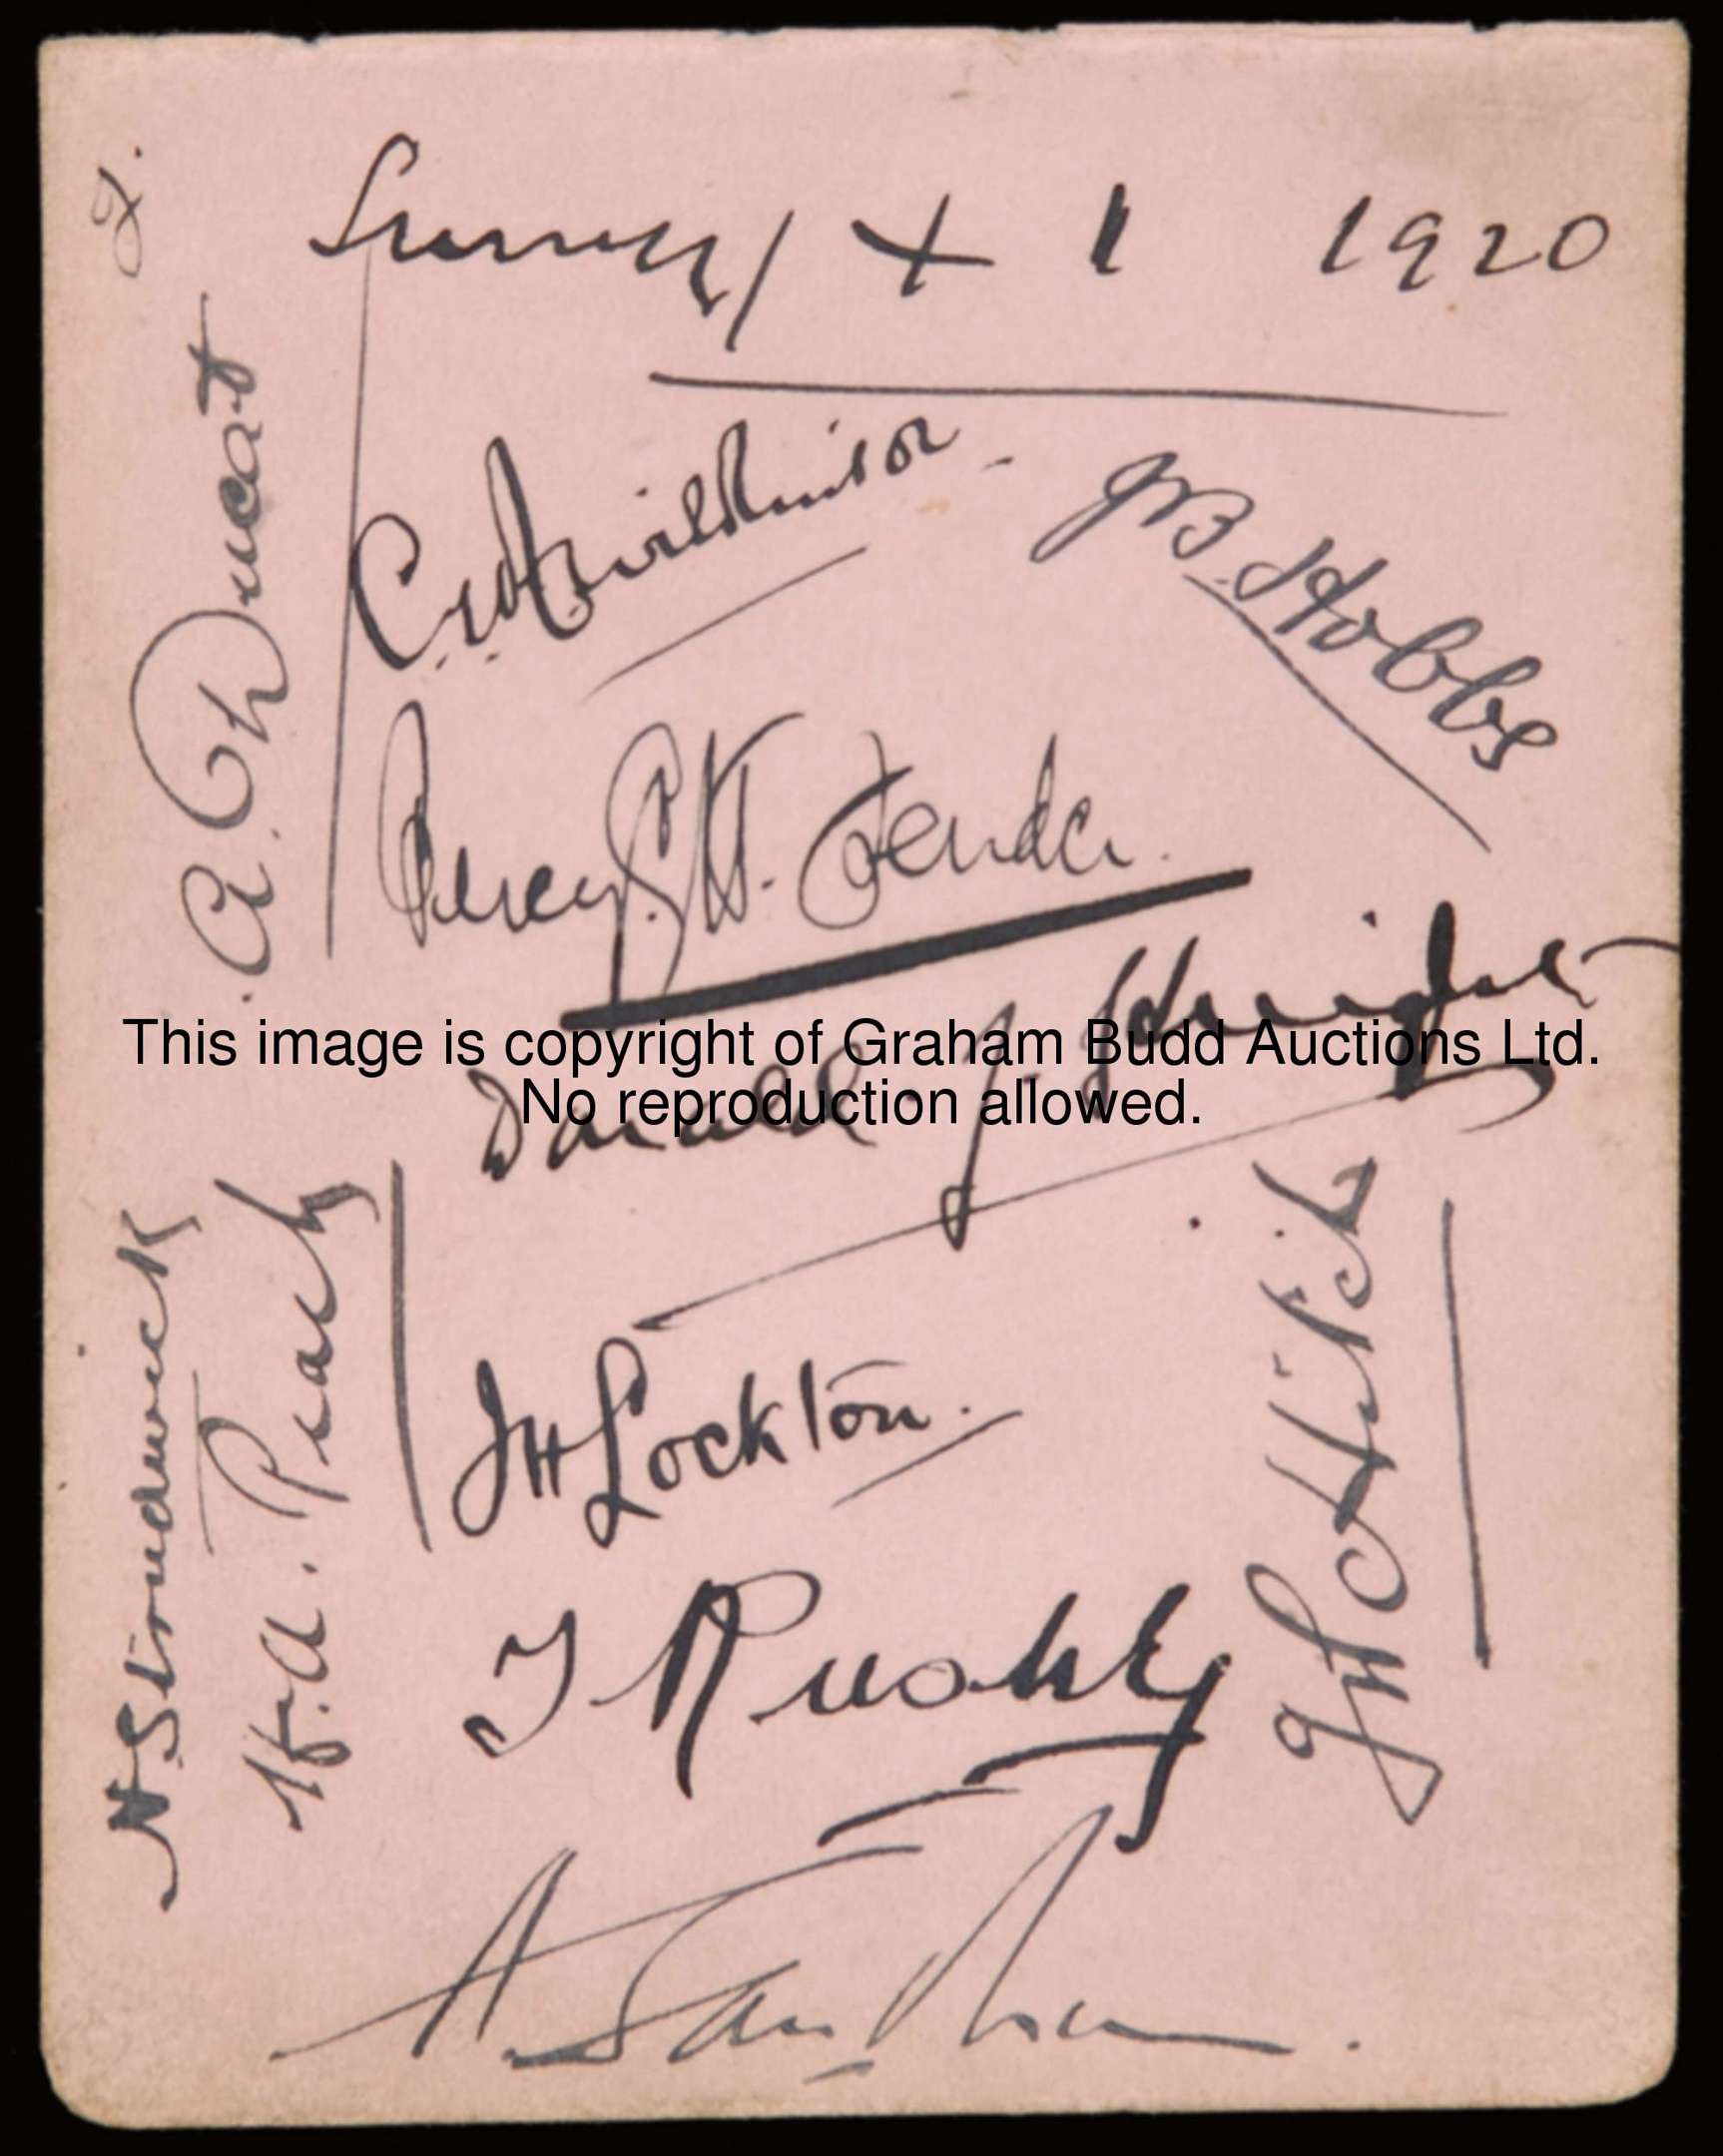 2.
Surrey X 1 1920
A. Ducat
C.W.A. Wilkinson
J B. Hobbs
Percy G. H. Fender.
Donald J. Knight
This image is copyright of Graham Budd Auctions Ltd.
No reproduction allowed.
H Strudwick
H. A. Peach
J H Lockton.
J W Hitch
T Rushby
A. Sandham.